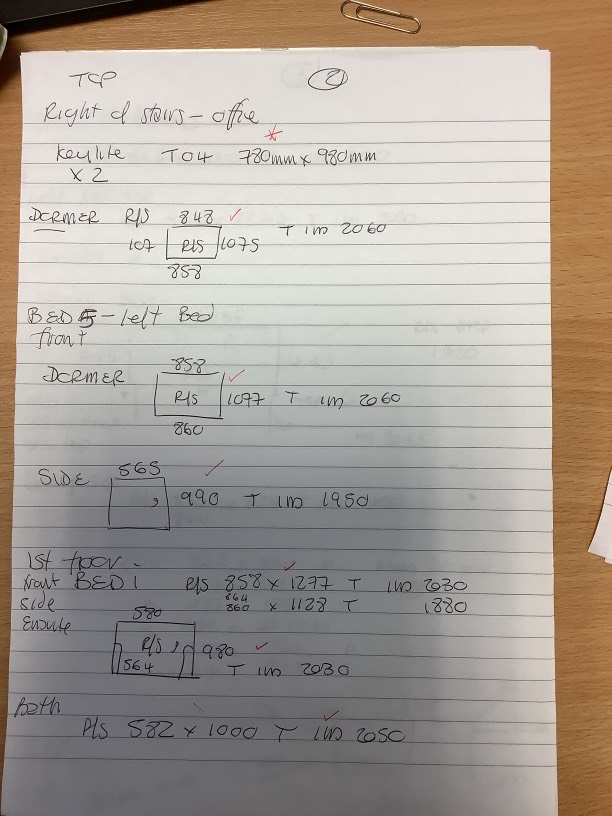 TOP
2
Right of stairs - office
Keylite T04 780mm x 980mm
x 2
DORMER R/S 848 T 1m 2060
107 R/S 1075
858
BED 5 - left Bed
front
858
DORMER R/S 1077 T 1m 2060
860
565
SIDE 990 T 1m 1950
1st floor -
front BED 1 R/S 858 x 1277 T 1m 2030
side 864 860 x 1128 T 1880
580
Ensuite R/S 980
564 T 1m 2030
Bath
R/S 582 x 1000 T 1m 2050